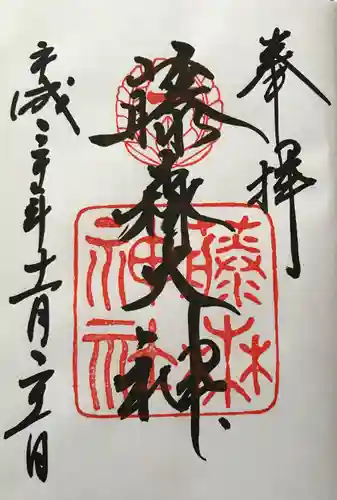 奉拝
藤森大神
藤森神社
平成三十年十一月日